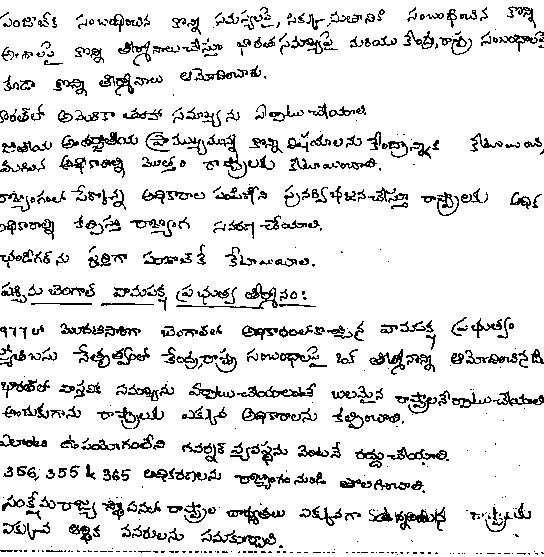 పంజాబ్‌కు సంబంధించిన కొన్ని సమస్యలపై, సిక్కు మతానికి సంబంధించిన కొన్ని
అంశాలపై కొన్ని తీర్మానాలు చేస్తూ భారత సమాఖ్యపై మరియు కేంద్ర, రాష్ట్ర సంబంధాలపై
కూడా కొన్ని తీర్మానాలు ఆమోదించారు.
భారత్‌లో అమెరికా తరహా సమాఖ్యను ఏర్పాటు చేయాలి.
జాతీయ అంతర్జాతీయ ప్రాముఖ్యమున్న కొన్ని విషయాలను కేంద్రానికి కేటాయించి
మిగిలిన అధికారాల్ని మొత్తం రాష్ట్రాలకు కేటాయించాలి.
రాజ్యాంగంలో పేర్కొన్న అధికారాల పంపిణీని పునర్విభజన చేస్తూ రాష్ట్రాలకు అధిక
అధికారాల్ని కల్పిస్తూ రాజ్యాంగ సవరణ చేయాలి.
ఛండీగర్‌ను పూర్తిగా పంజాబ్‌కే కేటాయించాలి.
పశ్చిమ బెంగాల్ వామపక్ష ప్రభుత్వ తీర్మానం:
1977లో మొదటిసారిగా బెంగాల్‌లో అధికారంలోకొచ్చిన వామపక్ష ప్రభుత్వం
జ్యోతిబసు నేతృత్వంలో కేంద్ర, రాష్ట్ర సంబంధాలపై ఒక తీర్మానాన్ని ఆమోదించినది
భారత్‌లో వాస్తవిక సమాఖ్యను ఏర్పాటు చేయాలంటే బలమైన రాష్ట్రాలనేర్పాటు చేయాలి
అందుకుగాను రాష్ట్రాలకు ఎక్కువ అధికారాలను కల్పించాలి.
ఎలాంటి ఉపయోగంలేని గవర్నర్ వ్యవస్థను వెంటనే రద్దు చేయాలి.
356, 355 & 365 అధికరణలను రాజ్యాంగం నుండి తొలగించాలి.
సంక్షేమరాజ్య స్థాపనలో రాష్ట్రాల బాధ్యతలు ఎక్కువగా రాష్ట్రాలకు
ఎక్కువ ఆర్థిక వనరులను సమకూర్చాలి.